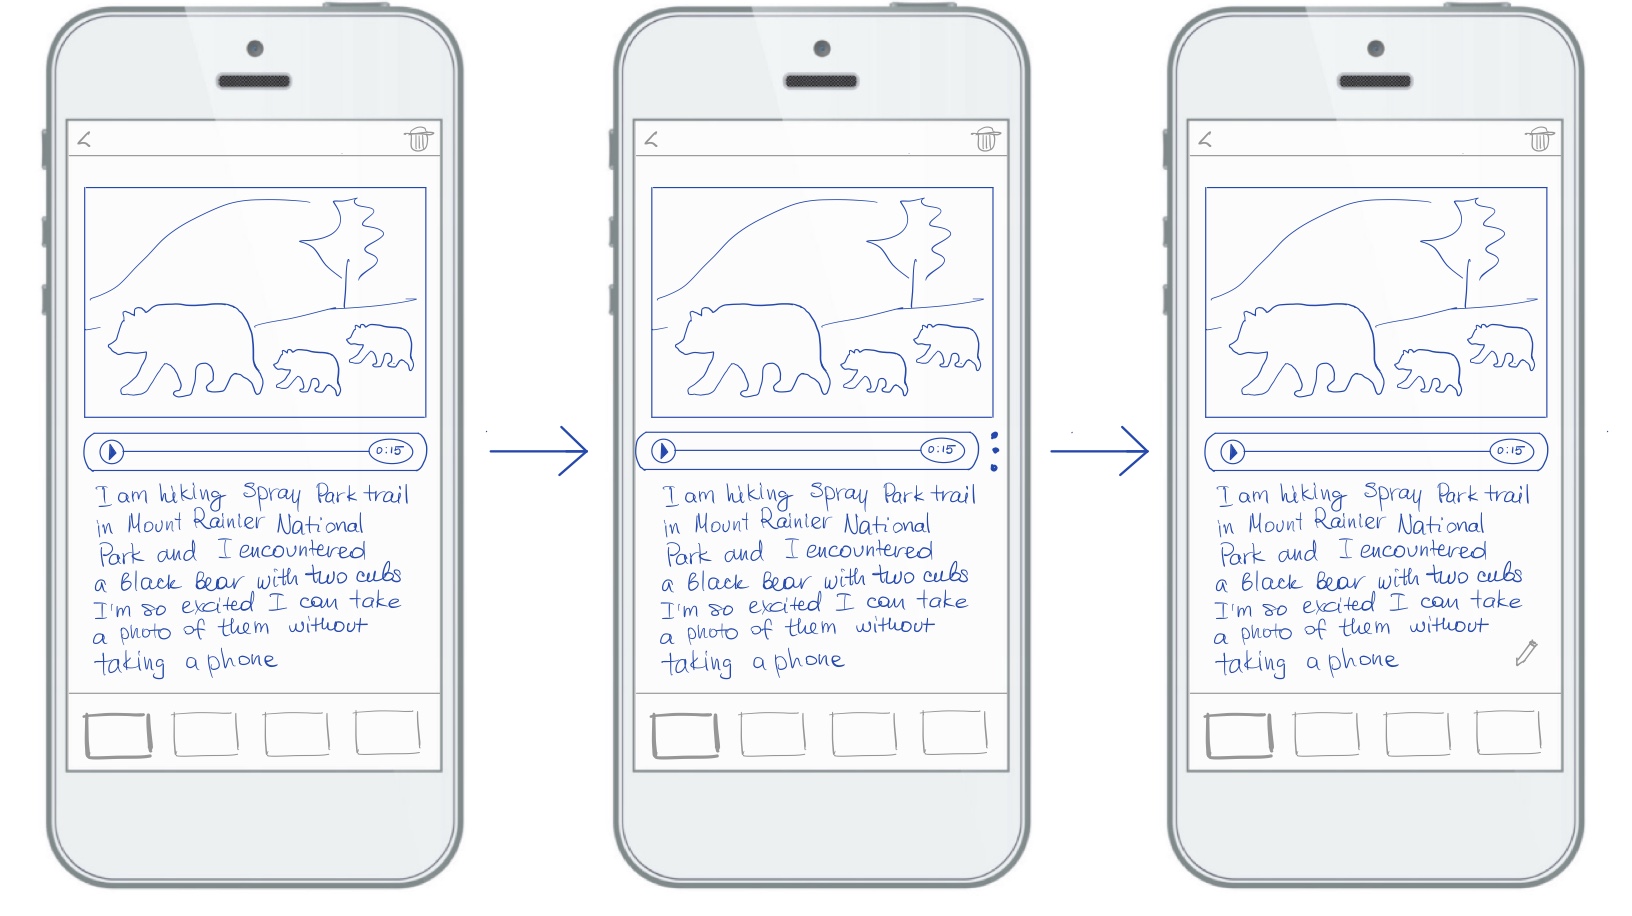 0:15
I am hiking Spray Park trail
in Mount Rainier National
Park and I encountered
a Black Bear with two cubs
I'm so excited I can take
a photo of them without
taking a phone
0:15
I am hiking Spray Park trail
in Mount Rainier National
Park and I encountered
a Black Bear with two cubs
I'm so excited I can take
a photo of them without
taking a phone
0:15
I am hiking Spray Park trail
in Mount Rainier National
Park and I encountered
a Black Bear with two cubs
I'm so excited I can take
a photo of them without
taking a phone